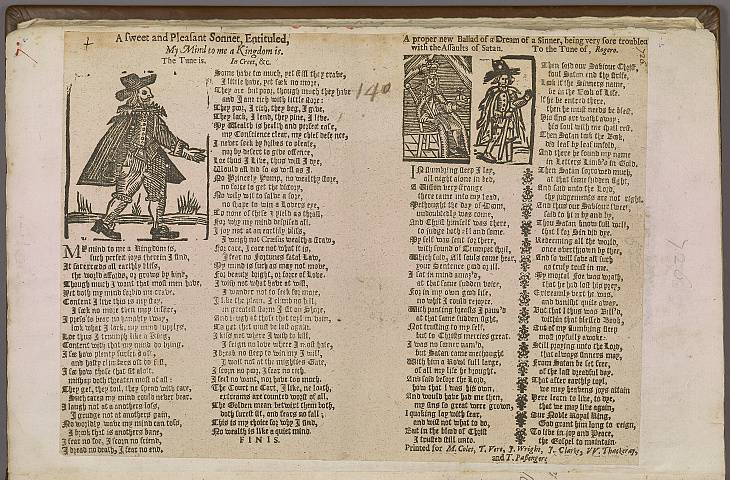 A sweet and Pleasant Sonnet, Entituled,
My Mind to me a Kingdom is.
The Tune is, In Creet, &c.
MY mind to me a Kingdom is,
such perfect joys therein I find,
It far exceeds all earthly bliss,
the world affords, or grows by kind,
Though much I want that most men have,
Yet doth my mind forbid me crave.
Content I live this is my stay,
I seek no more then may suffice,
I press to bear no haughty sway,
look what I lack, my mind supplys,
Loe thus I triumph like a King,
Content with that my mind do bring.
I see how plenty surfeits oft,
and hasty climbers oft do fall,
I see how those that sit aloft,
mishap doth threaten most of all:
They get, they toil, they spend with care,
Such cares my mind could never bear.
I laugh not at anothers loss,
I grudge not at anothers gain,
No worldly wave my mind can toss,
I brook that is anothers bane,
I fear no foe, I scorn no friend,
I dread no death, I fear no end.
Some have too much, yet still they crave,
I little have, yet seek no more,
They are but poor, though much they have
and I am rich with little store:
They poor, I rich, they beg, I give,
They lack, I lend, they pine, I live.
My Wealth is health and perfect ease,
my Conscience clear, my chief defence,
I never seek by bribes to please,
nor by desert to give offence,
Loe thus I Live, thus will I dye,
Would all did so as well as I.
No Princely Pomp, no wealthy store,
no force to get the victory,
No wily wit to salve a sore,
no shape to win a Lovers eye,
To none of these I yield as thrall,
For why my mind despised all.
I joy not at an earthly bliss,
I weigh not Cræsus wealth a straw,
For care, I care not what it is,
I fear no Fortunes fatal Law,
My mind is such as may not move,
For beauty bright, or force of Love.
I wish not what I have at will,
I wander not to seek for more,
I like the plain, I climb no hill,
in greatest storm I sit on Shore,
And laugh at those that toyl in vain,
To get that must be lost again.
I kiss not where I wish to kill,
I feign no love where I most hate,
I break no sleep to win my will,
I wait not at the mighties Gate,
I scorn no poor, I fear no rich,
I feel no want, nor have too much.
The Court ne Cart, I like, ne loath,
extreams are counted worst of all,
The Golden mean betwixt them both,
doth surest sit, and fears no fall;
This is my choice for why I find,
No wealth is like a quiet mind.
FINIS.
140
A proper new Ballad of a Dream of a Sinner, being very sore troubled
with the Assaults of Satan. To the Tune of, Rogero.
IN slumbring sleep I lay,
all night alone in bed,
A Vision very strange
there came into my head,
Methought the day of Doom,
undoubtedly was come,
And Christ himself was there
to judge both all and some.
My self was sent for there,
with sound of Trumpet shrill,
Which said, All souls come hear,
your Sentence good or ill.
I sat in mind amaz'd,
at that same sudden voice,
For in my own good life,
no whit I could rejoyce.
With panting breasts I paus'd
at that same sudden sight,
Not trusting to my self,
but to Christs mercies great.
I was no sooner nam'd,
but Satan came methought
With him a Rowl full large,
of all my life he brought.
And laid before the Lord,
how that I was his own,
And would have had me then,
my sins so great were grown,
I quaking lay with fear,
and wist not what to do,
But in the blood of Christ
I trusted still unto.
Then said our Saviour Christ,
foul Satan end thy strife,
Look if the Sinners name,
be in the Book of Life.
If he be entred there,
then he must needs be blest,
His sins are washt away;
his soul with me shall rest.
Then Satan took the Book,
did leaf by leaf unfold,
And there he found my name
in Letters Limb'd in Gold.
Then Satan sorrowed much,
at that same sudden sight,
And said unto the Lord,
thy judgements are not right.
And thou our Saviour sweet,
said to him by and by,
Thou Satan know full well,
that I for Sin did dye.
Redeeming all the world,
once overthrown by thee,
And so will save all such
as truly trust in me.
My mortal Foe was wroth,
that he had lost his prey,
Extreamly vext he was,
and vanisht quite away.
But that I thus was Bless'd,
within that blessed Book,
Out of my slumbring sleep
most joyfully awoke.
Still praying unto the Lord,
that always sinners may,
From Satan be set free,
at the last dreadful day.
That after earthly toyl,
we may heavens joys attain
Here learn to live, to dye,
that we may live again,
Our Noble Royal King,
God grant him long to reign,
To live in joy and Peace,
the Gospel to maintain.
Printed for M. Coles, T. Vere, J. Wright, J. Clarke, W. Thackeray,
and T. Passenger.